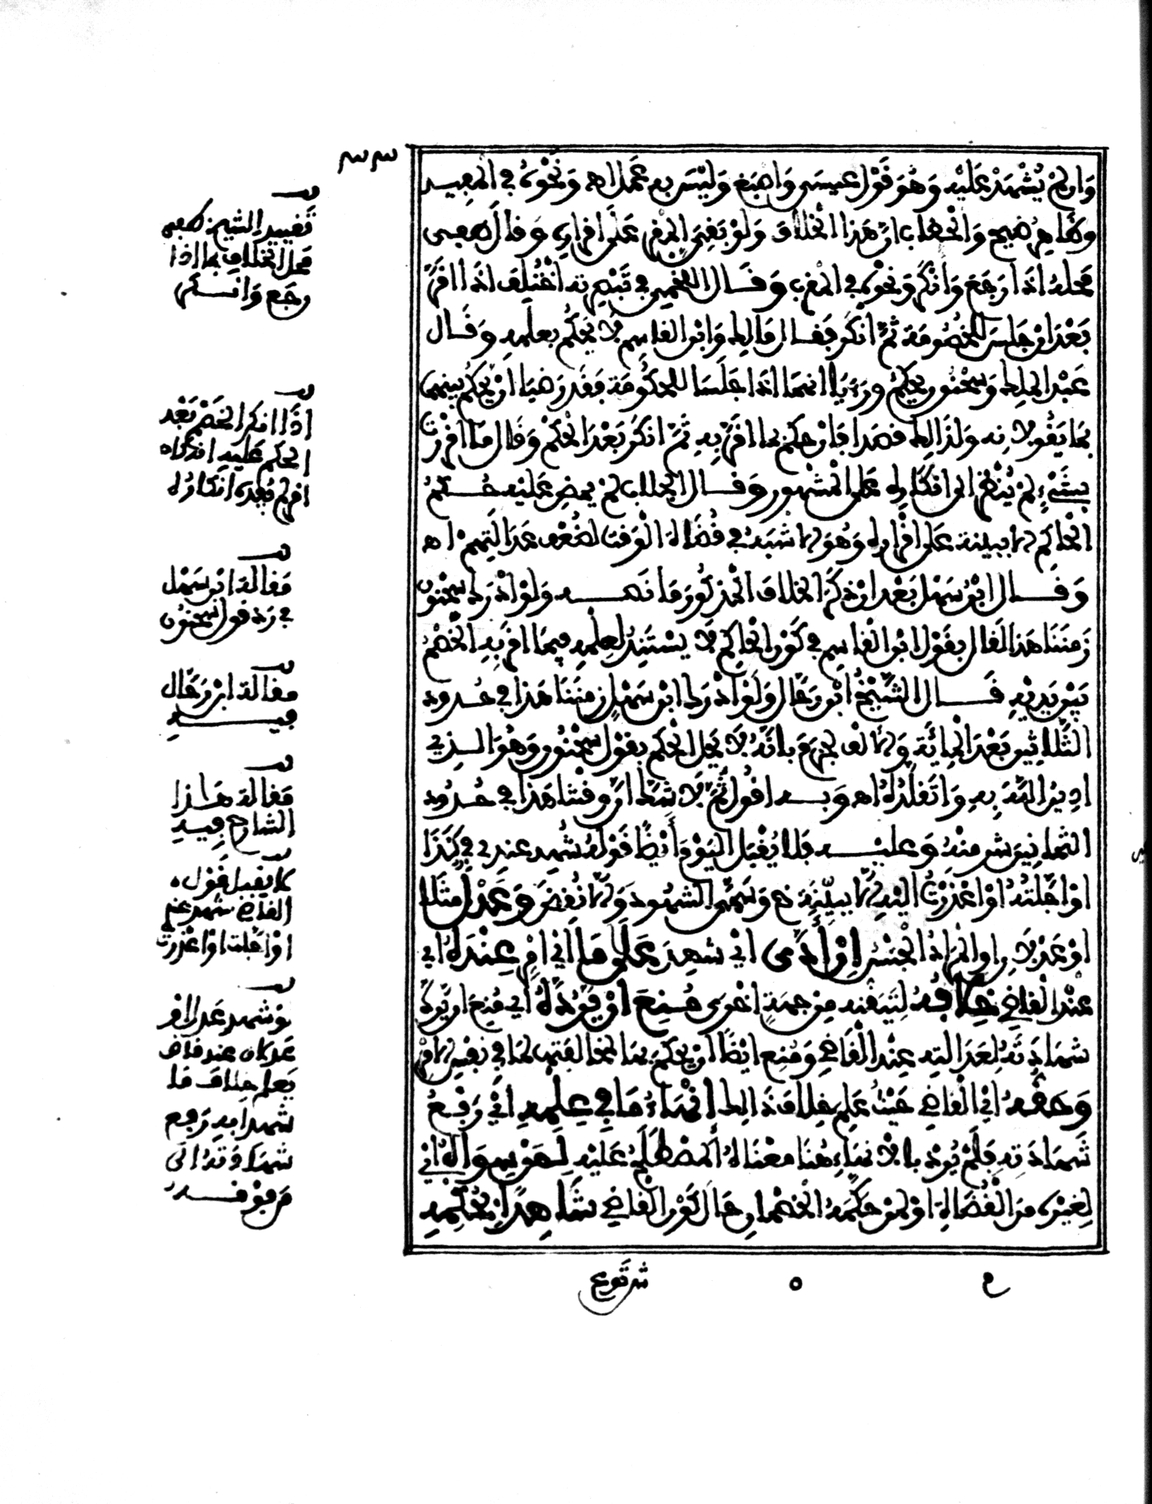 وان لم يشهد عليه وهو قول عيسى واصبغ وليس به عمل اه ونحوه في المفيد
وظاهر ضيح والحطاب ان هذا الخلاف ولو بقي المقر على اقراره وقال طفى
محله اذا رجع وانكر ونحوه في المغرب وقال اللخمي في تبصرته اختلف اذا اقر
بعد ان جلس للخصومة ثم انكر فقال مالك وابن القاسم لا يحكم بعلمه وقال
عبد الملك وسحنون يحكم ورءيا انهما اذا جلسا للحكومة فقد رضيا ان يحكم بينهما
بما يقولانه ولذلك قصدا فان حكم بما اقر به ثم انكر بعد الحكم وقال ما اقررت
بشيء لم ينظر الى انكاره على المشهور وقال الجلاب لم يمض عليه حكم
الحاكم الا ببينة على اقراره وهو الاشبه في قضاة الوقت لضعف عدالتهم اه
وقال ابن سهل بعد ان ذكر الخلاف المذكور ما نصه ولو ادرك سحنون
زمننا هذا لقال بقول ابن القاسم في كون الحاكم لا يستند لعلمه فيما اقر به الخصم
بين يديه قال الشيخ ابن رحال ولو ادرك ابن سهل زمننا هذا في حدود
الثلاثين بعد المائة والالف لجزم بانه لا يحل الحكم بقول سحنون وهو الذي
ادين الله به واتقلده اه وبه اقول ثم لا شك ان وقتنا هذا في حدود
الثمانين شر منه وعليه فلا يقبل اليوم ايضا قوله شهد عندي في كذا
او اجلته او اعذرت اليه الا ببينة خ وسمى الشهود والا نقض وعدل مثلا
او عدلان او المراد الجنس ان أدى اي شهد على ما اي امر عنده اي
عند القاضي خلافه لتيقنه من جهة اخرى منع أو يرده اي منع ان يرد
شهادته لعدالته عند القاضي ومنع ايضا ان يحكم بها لمخالفتها لما في نفس الامر
وحقه اي القاضي حيث علم خلاف ذلك انهاء ما في علمه اي رفع
شهادته فلم يرد بالانهاء هنا معناه المصطلح عليه لمن سواه اي
لغيره من القضاة او لمن حكمه الخصمان حال كون القاضي شاهدا بحكمه
سس
قف
تقييد الشيخ طفى
محل الخلاف بما اذا
رجع وانكر
قف
اذا انكر الخصم بعد
الحكم عليه اقراره
افلم يفده انكاره
قف
مقالة ابن سهل
في رد قول سحنون
قف
مقالة ابن رحال
فيه
قف
مقالة هذا
الشارح فيه
قف
لا يقبل قول
القاضي شهد عندي
او اجلته او اعذرت
قف
لو شهد عدل او
عدلان عند قاض
يعلم خلاف ما
شهدا به رفع
شهادته الى
من فوقه